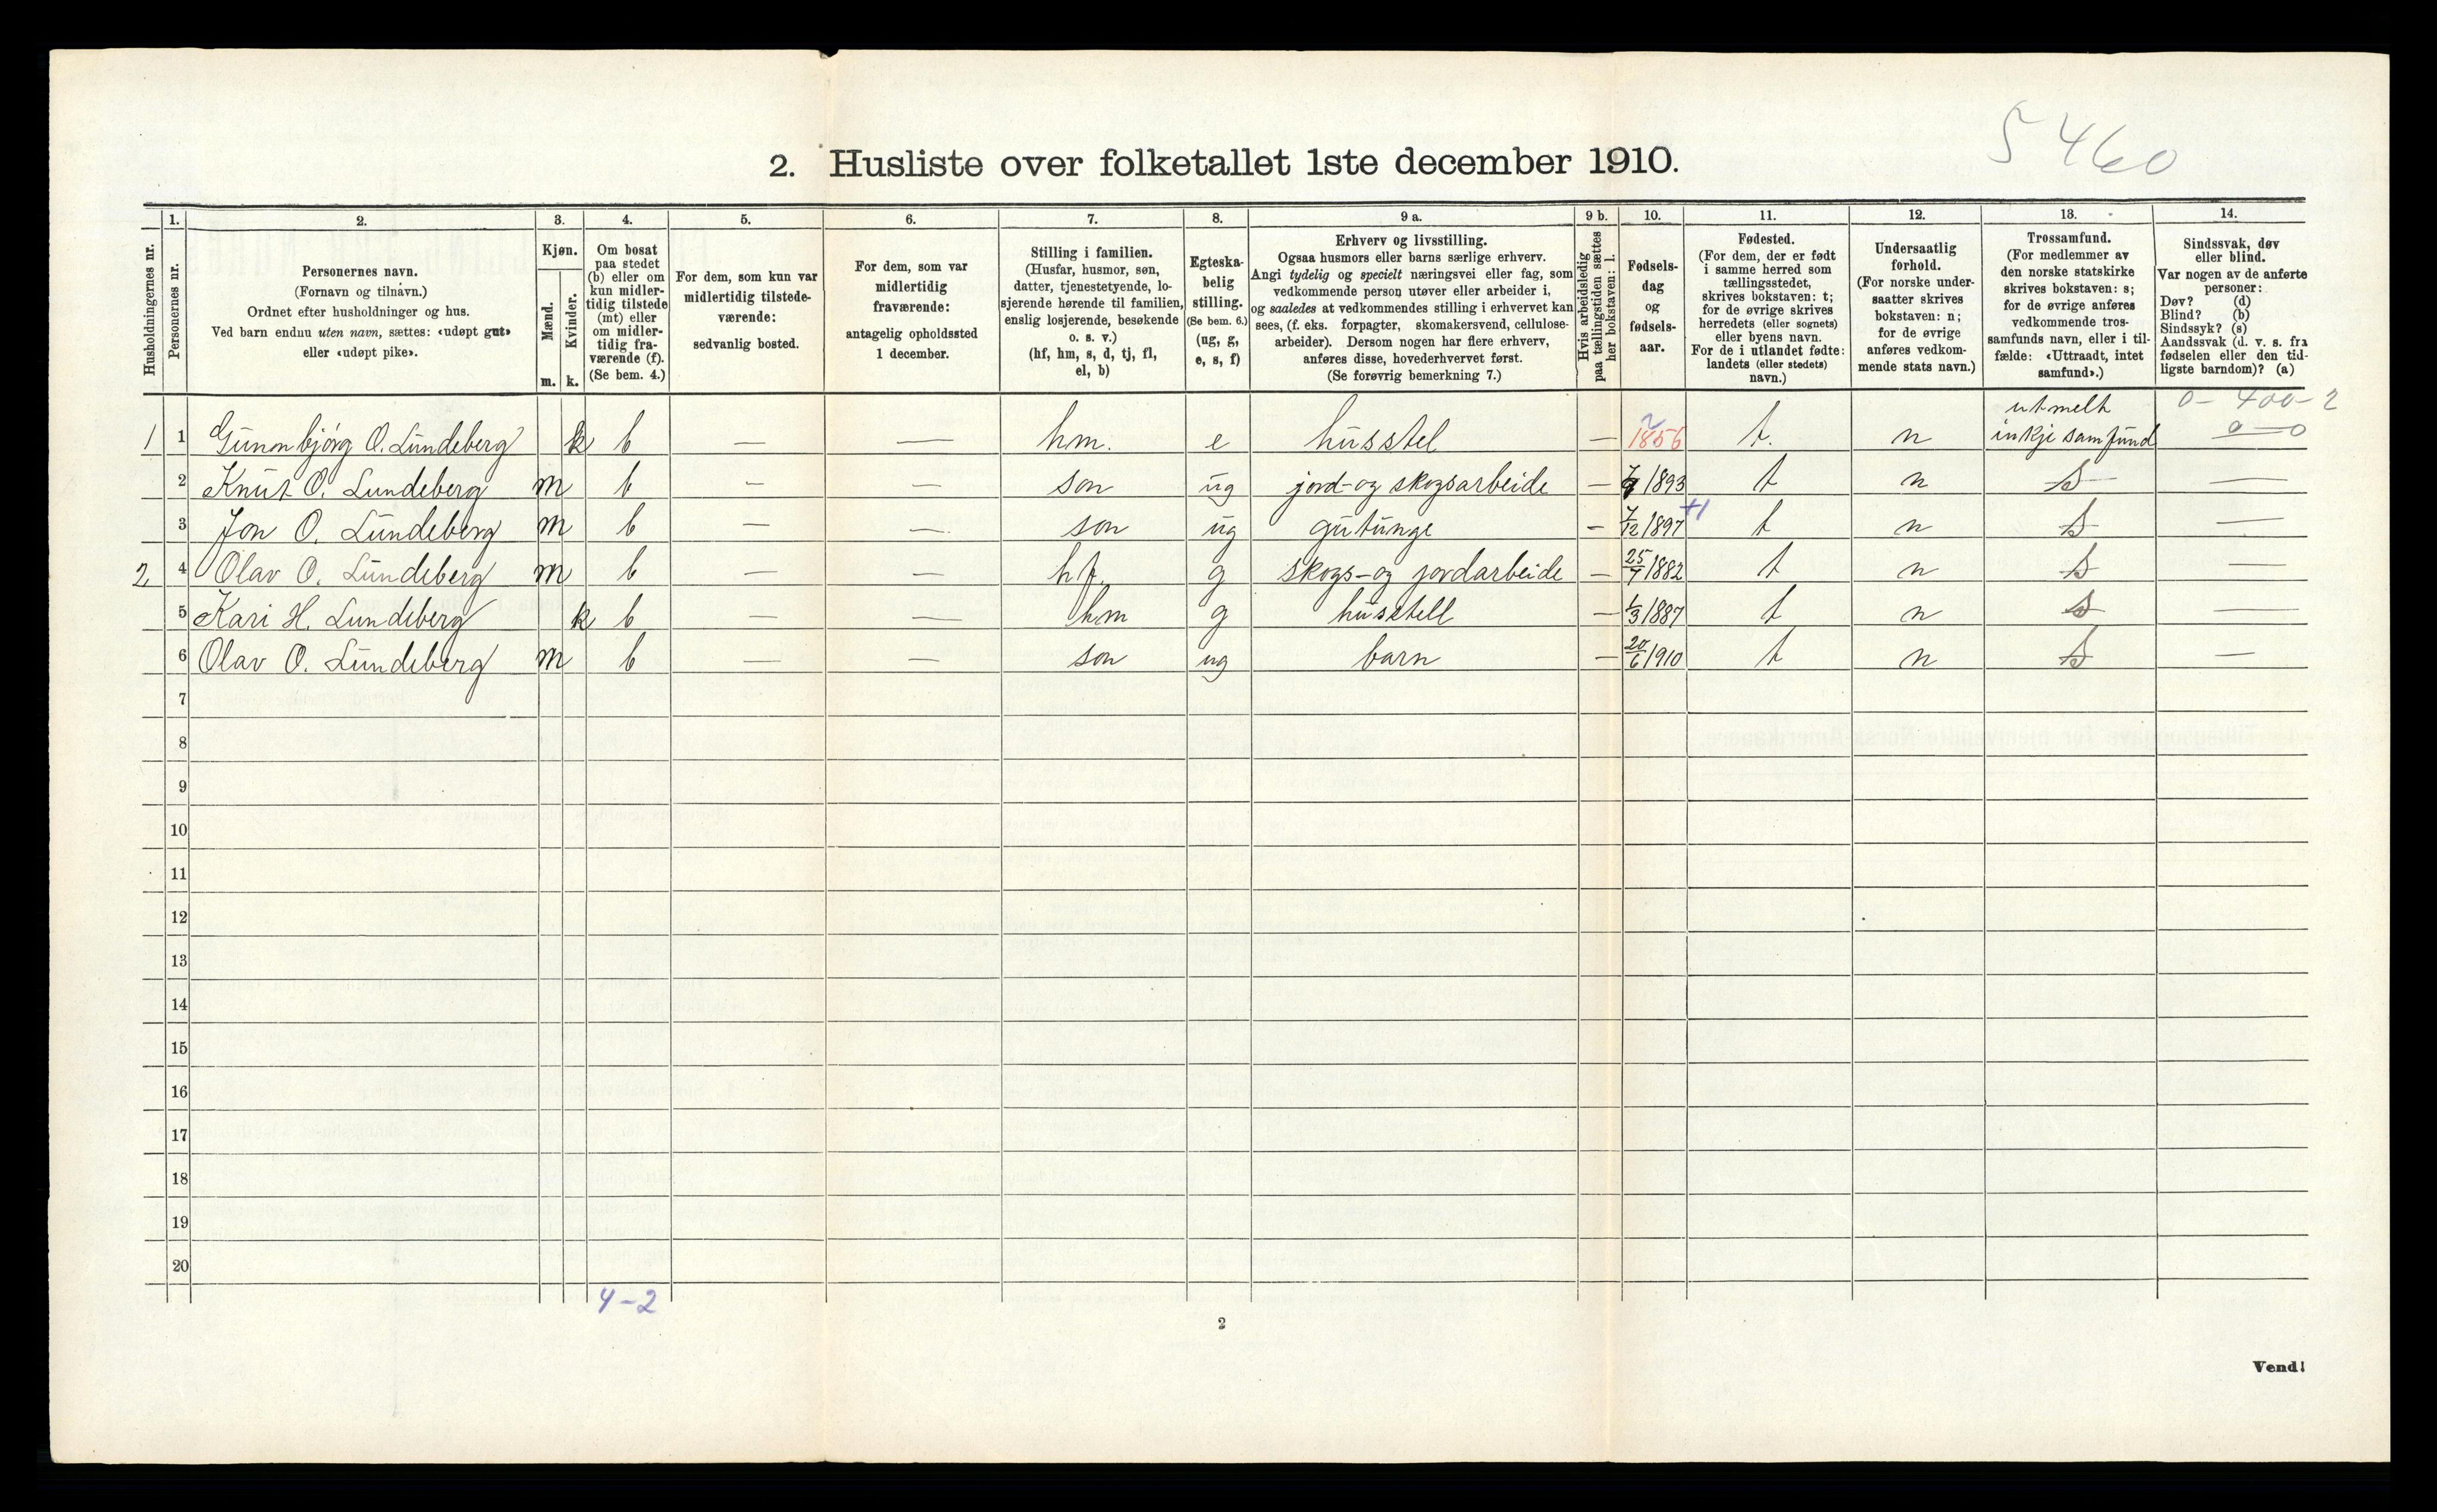 5460
2. Husliste over folketallet 1ste december 1910.
Husholdningernes nr.
1. Personernes nr.
2. Personernes navn. (Fornavn og tilnavn.) Ordnet efter husholdninger og hus. Ved barn endnu uten navn, sættes: «udøpt gut» eller «udøpt pike».
3. Kjøn. Mænd. m. Kvinder. k.
4. Om bosat paa stedet (b) eller om kun midlertidig tilstede (mt) eller om midlertidig fraværende (f). (Se bem. 4.)
5. For dem, som kun var midlertidig tilstedeværende: sedvanlig bosted.
6. For dem, som var midlertidig fraværende: antagelig opholdssted 1 december.
7. Stilling i familien. (Husfar, husmor, søn, datter, tjenestetyende, losjerende hørende til familien, enslig losjerende, besøkende o. s. v.) (hf, hm, s, d, tj, fl, el, b)
8. Egteskabelig stilling. (Se bem. 6.) (ug, g, e, s, f)
9 a. Erhverv og livsstilling. Ogsaa husmors eller barns særlige erhverv. Angi tydelig og specielt næringsvei eller fag, som vedkommende person utøver eller arbeider i, og saaledes at vedkommendes stilling i erhvervet kan sees, (f. eks. forpagter, skomakersvend, cellulosearbeider). Dersom nogen har flere erhverv, anføres disse, hovederhvervet først. (Se forøvrig bemerkning 7.)
9 b. Hvis arbeidsledig paa tællingstiden sættes her bokstaven: l.
10. Fødselsdag og fødselsaar.
11. Fødested. (For dem, der er født i samme herred som tællingsstedet, skrives bokstaven: t; for de øvrige skrives herredets (eller sognets) eller byens navn. For de i utlandet fødte: landets (eller stedets) navn.)
12. Undersaatlig forhold. (For norske undersaatter skrives bokstaven: n; for de øvrige anføres vedkommende stats navn.)
13. Trossamfund. (For medlemmer av den norske statskirke skrives bokstaven: s; for de øvrige anføres vedkommende trossamfunds navn, eller i tilfælde: «Uttraadt, intet samfund».)
14. Sindssvak, døv eller blind. Var nogen av de anførte personer: Døv? (d) Blind? (b) Sindssyk? (s) Aandssvak (d. v. s. fra fødselen eller den tidligste barndom)? (a)
0 - 400 - 2
0 - 0
1 1 Gunnbjørg O. Lundeberg k b — — hm. e husstel — 1856 t. n utmelt inkje samfund
2 Knut O. Lundeberg m b — — son ug jord- og skogsarbeide — 1893 t n s —
3 Jon O. Lundeberg m b — — son ug gutunge — 7/12 1897 +1 t n s —
2 4 Olav O. Lundeberg m b — — hf. g skogs- og jordarbeide — 25/7 1882 t n s —
5 Kari H. Lundeberg k b — — hm g husstell — 1/3 1887 t n s —
6 Olav O. Lundeberg m b — — son ug barn — 20/6 1910 t n s —
7
8
9
10
11
12
13
14
15
16
17
18
19
20
4-2
2
Vend!